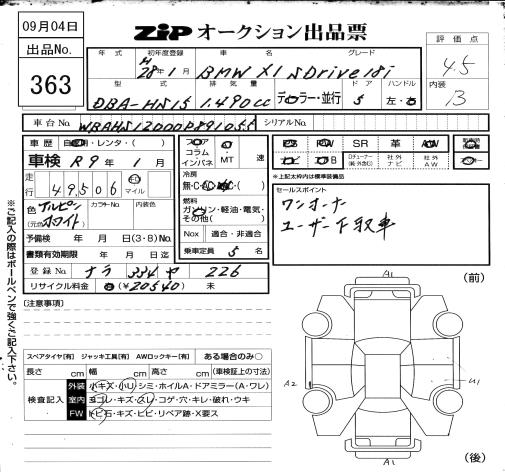 09月04日
出品No.
363
ZiP オークション出品票
評価点
4.5
内装
B
年式 初年度登録 車名 グレード
H 28年1月 BMW X1 sDrive18i
型式 排気量 ドア ハンドル
DBA-HS15 1,490cc ディーラー・並行 5 左・右
車台No. シリアルNo.
車歴 自家用・レンタ・( )
車検 R9年1月
走行 49,506 km マイル
色 アルピンホワイト
(元色 ) カラーNo. 内装色
予備検 年 月 日(3・8)No.
書類有効期限 年 月 日迄
登録No. ナラ 334 ヤ 226
リサイクル料金 済(¥20540) 未
フロア コラム インパネ MT 速
冷房 無・C・AC・WAC
燃料
ガソリン・軽油・電気・その他( )
Nox 適合・非適合
乗車定員 5名
PS PW SR 革 AW
ナビ TV Dチューナー(純・外含む) 社外ナビ 社外AW
*上記太枠内は標準装備品
セールスポイント
ワンオーナー
ユーザー下取車
※ご記入の際はボールペンで強くご記入下さい。
[注意事項]
スペアタイヤ[有] ジャッキ工具[有] AWロックキー[有] ある場合のみ○
長さ cm 幅 cm 高さ cm (車検証上の寸法)
検査記入
外装 小キズ・小U・シミ・ホイルA・ドアミラー(A・ワレ)
室内 ヨゴレ・キズ・スレ・コゲ・穴・キレ・破れ・ウキ
FW トビ石・キズ・ヒビ・リペア跡・X要ス
(前)
A1
A2
U1
A1
(後)